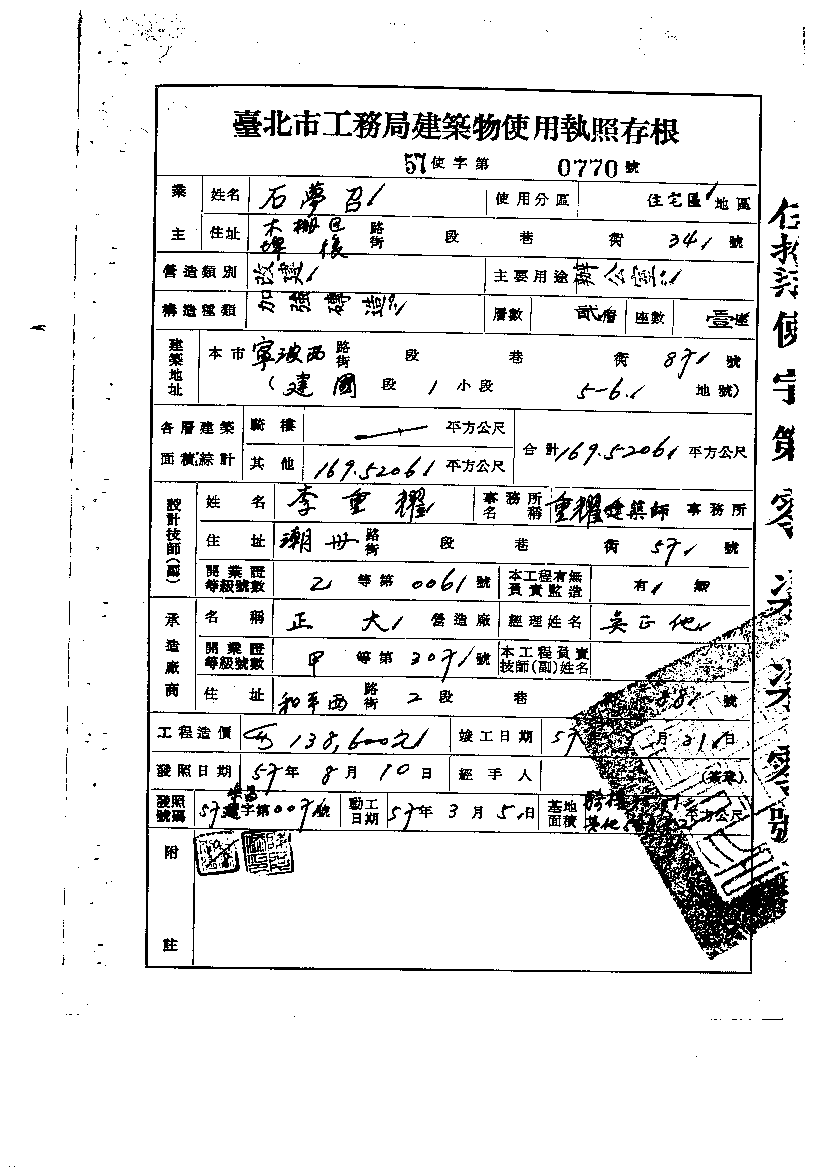 臺北市工務局建築物使用執照存根
57使字第 0770 號
業主 姓名 石夢召 使用分區 住宅區 地區
住址 木柵區 路街 段 巷 街 34 號
埤後
營造類別 改建 主要用途 辦公室
構造種類 加強磚造 層數 貳層 座數 壹座
建築地址 本市寧波西路街 段 巷 街 號
(建國段 1 小段 5-6 地號)
各層建築面積綜計 騎樓 平方公尺 合計 169.5206 平方公尺
其他 169.5206 平方公尺
設計技師(副) 姓名 李重耀 事務所名稱 重耀建築師 事務所
住址 潮州 路街 段 巷 街 號
開業證等級號數 乙 等第 006 號 本工程有無負責監造 有 無
承造廠商 名稱 正大 營造廠 經理姓名
開業證等級號數 甲 等第 號 本工程負責技師(副)姓名
住址 和平西 路街 2 段 巷 88 號
工程造價 138,600元 竣工日期 57 月 31 日
發照日期 57年 8月 10日 經手人 (簽章)
發照號碼 57 字第 號 動工日期 57年 3月 5日 基地面積 平方公尺
附註
伍拾柒使字第零柒柒零號